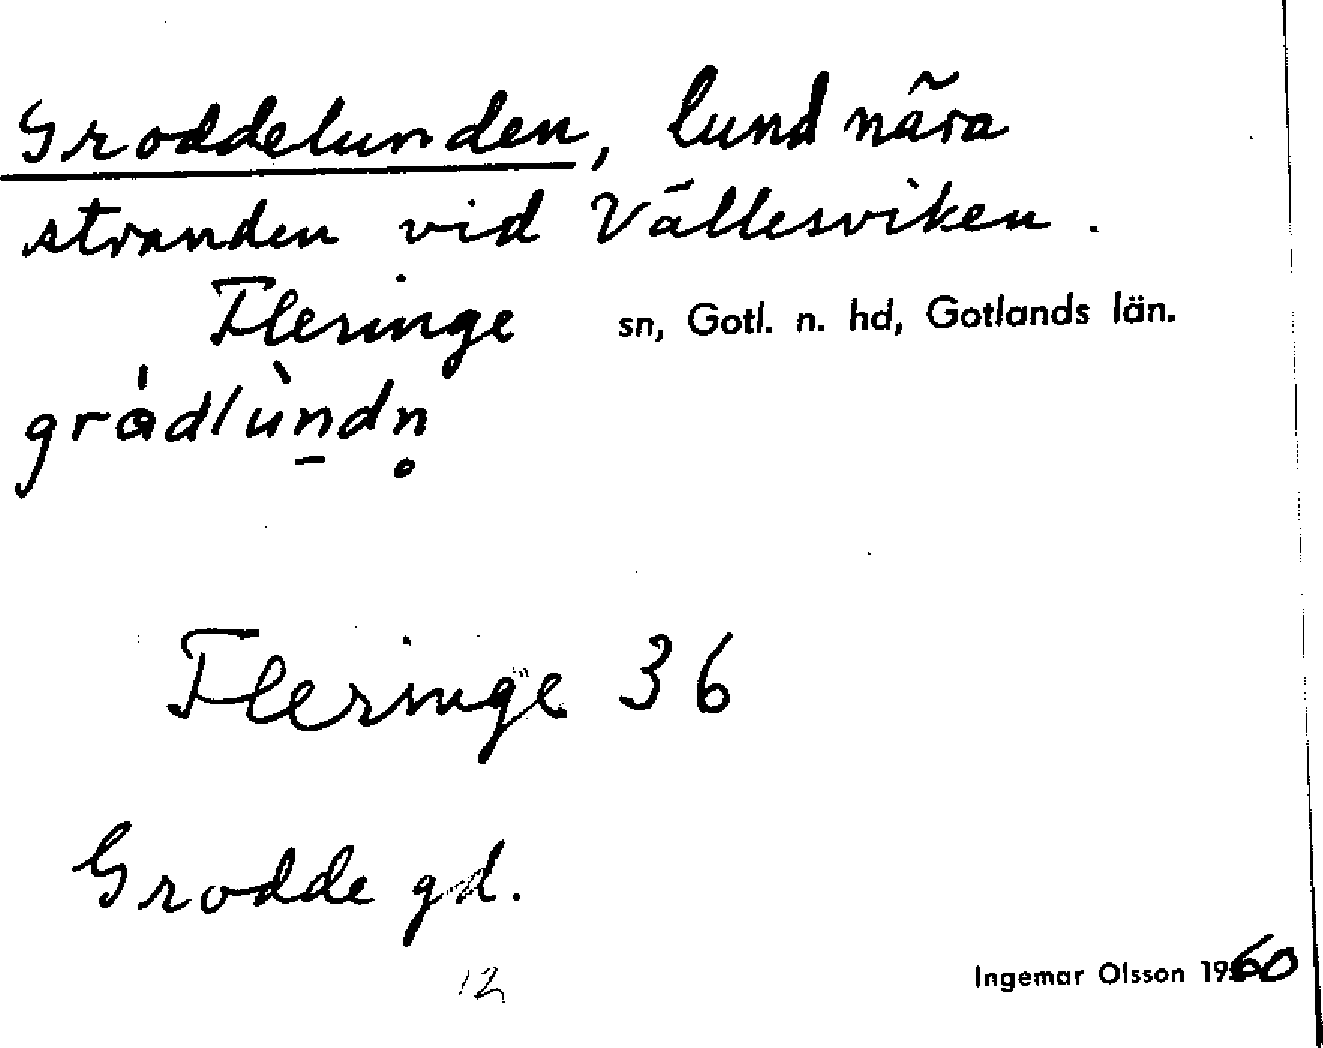 Groddelunden, lund nära
stranden vid Vällesviken.
Fleringe sn, Gotl. n. hd, Gotlands län.
Fleringe 36
Grodde gd.
12
Ingemar Olsson 1960